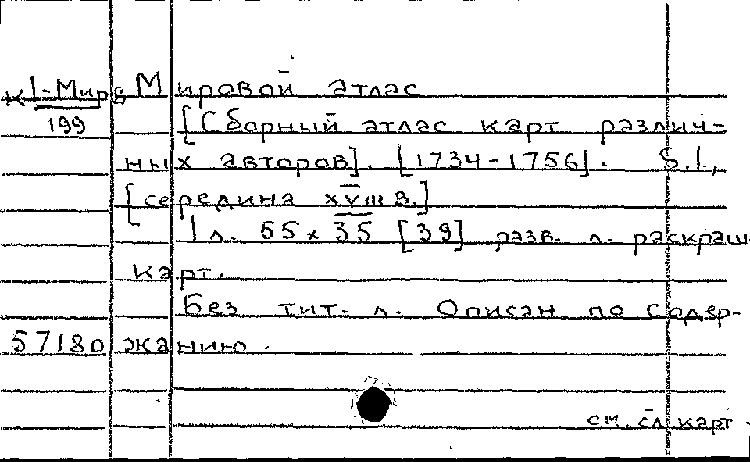 к1-Мира Мировой атлас
199 [Сборный атлас карт различ-
ных авторов]. [1734-1756]. S.l.,
[середина XVIII в.]
1 л. 55 x 35 [39] разв. л. раскраш.
карт.
Без тит. л. Описан по содер-
57180 жанию.
см. сл карт